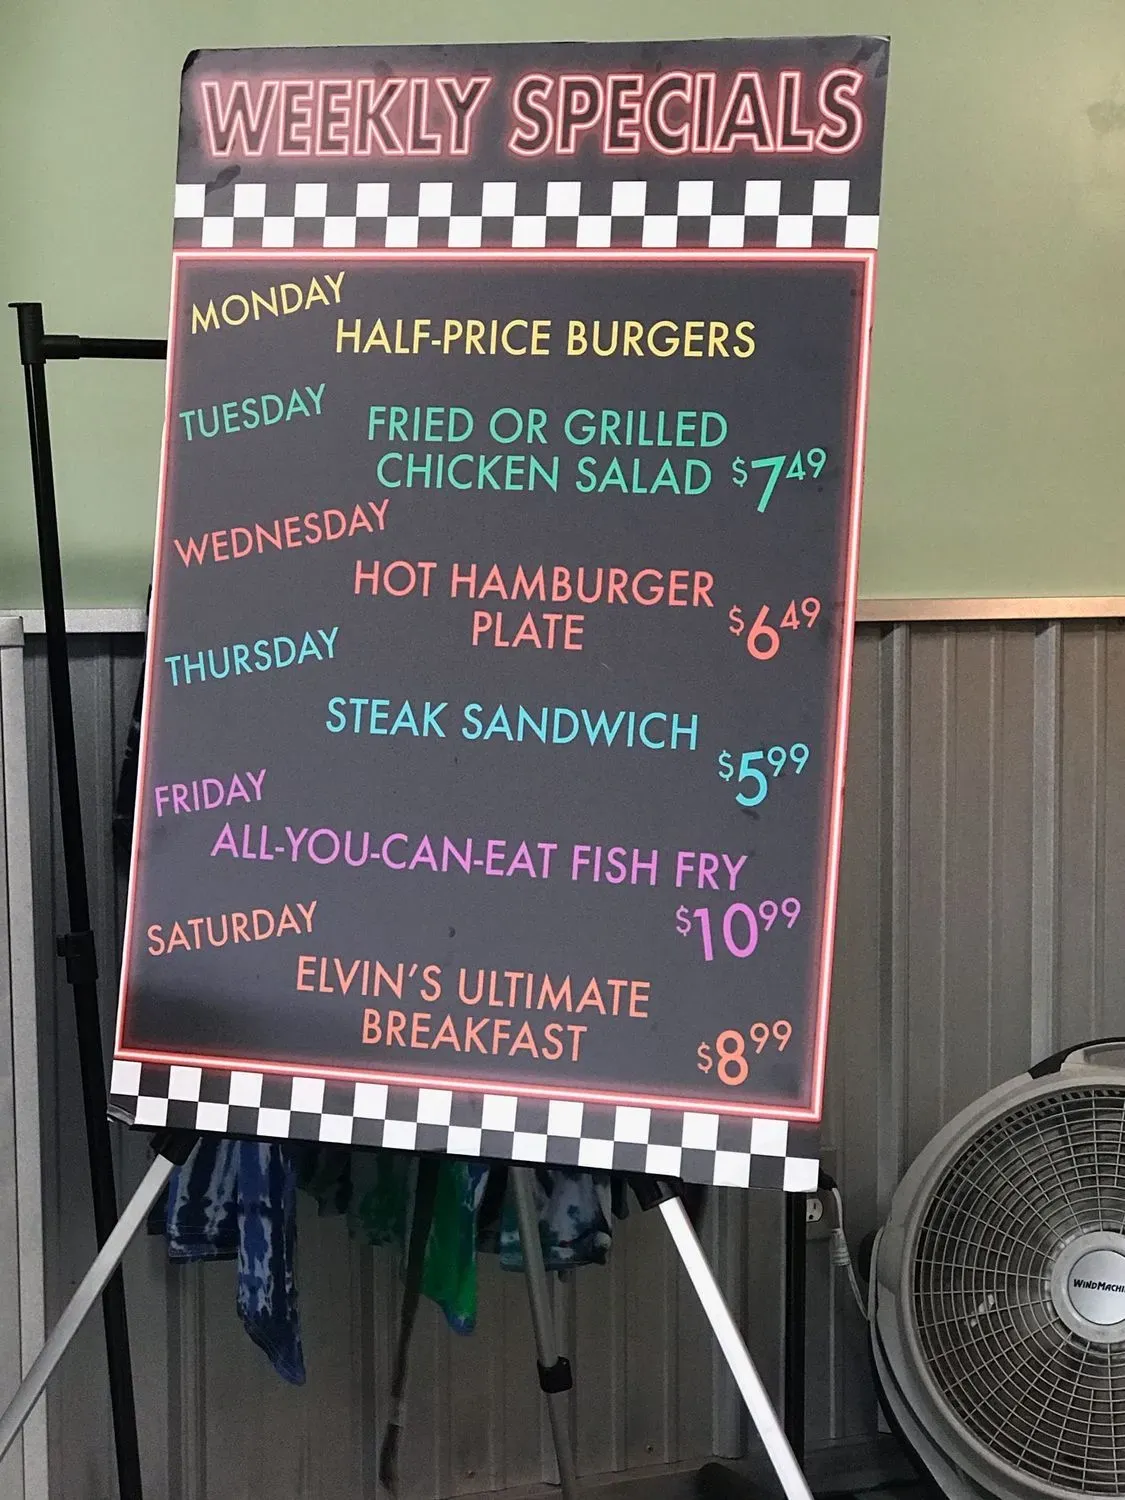 WEEKLY SPECIALS
MONDAY
HALF-PRICE BURGERS
TUESDAY
FRIED OR GRILLED
CHICKEN SALAD $7.49
WEDNESDAY
HOT HAMBURGER
PLATE $6.49
THURSDAY
STEAK SANDWICH
$5.99
FRIDAY
ALL-YOU-CAN-EAT FISH FRY
$10.99
SATURDAY
ELVIN'S ULTIMATE
BREAKFAST $8.99